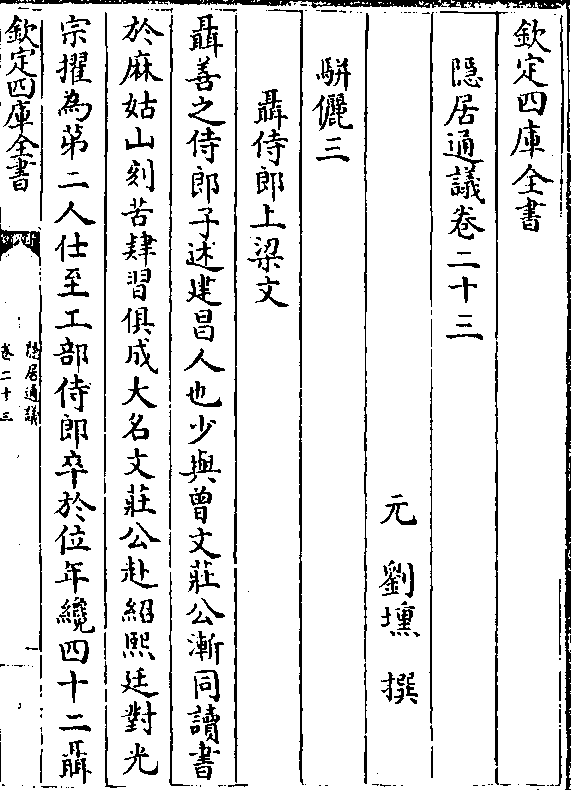 欽定四庫全書
隱居通議卷二十三
元 劉壎 撰
駢儷三
聶侍郎上梁文
聶善之侍郎子述建昌人也少與曾文莊公漸同讀書
於麻姑山刻苦肄習俱成大名文莊公赴紹熙廷對光
宗擢為第二人仕至工部侍郎卒於位年纔四十二聶
欽定四庫全書
隱居通議
卷二十三